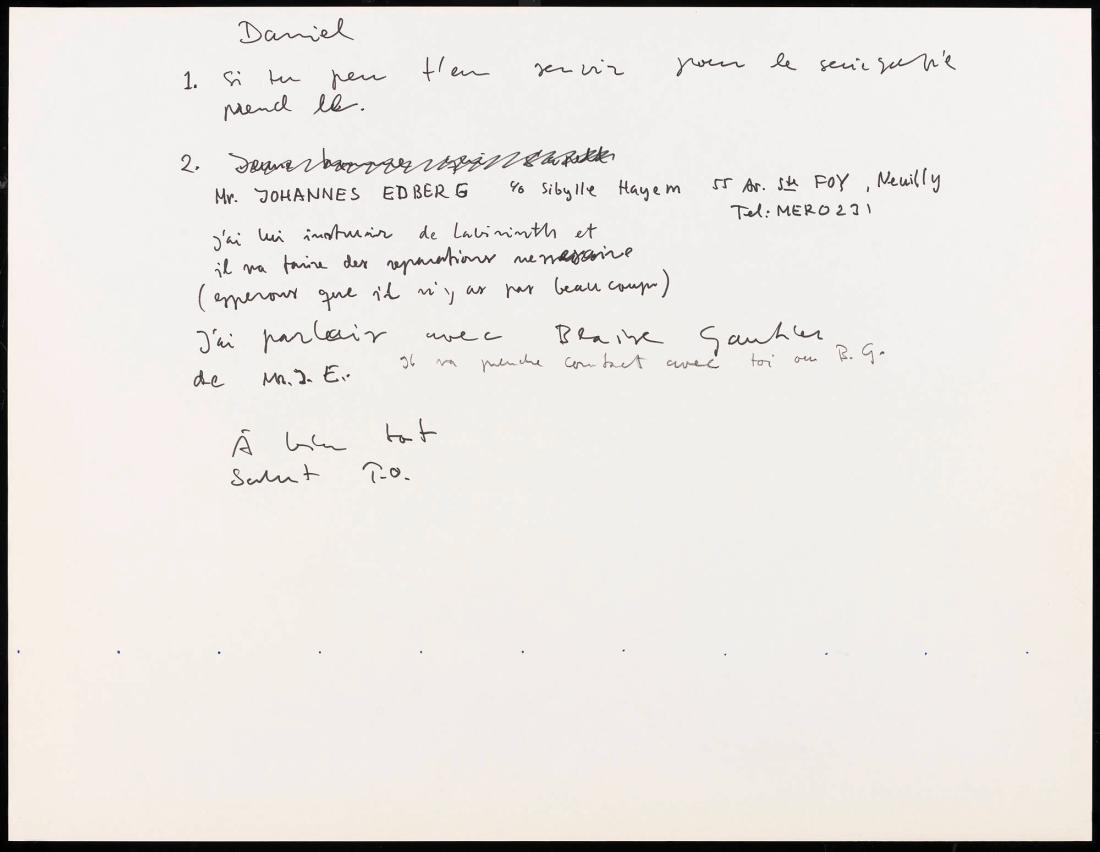 Daniel
1. Si tu peu t'en servir pour le serigraphie
prend le.
2.
Mr. JOHANNES EDBERG c/o Sibylle Hayem 55 Av. Ste FOY, Neuilly
Tel: MERO231
j'ai lui instruir de Labirinth et
il va faire des reparations nessesaire
(esperons que il n'y as pas beaucoup)
J'ai parlair avec Blaise Gautier
de Mr. J. E. Il va prendre contact avec toi ou B. G.
À bien tot
Salut T.O.